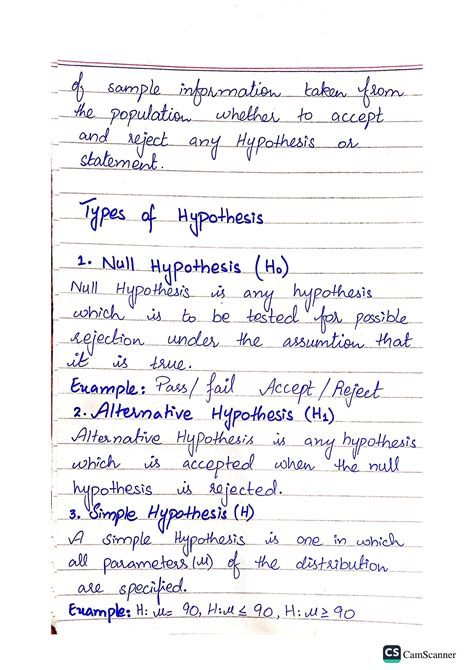 of sample information taken from
the population whether to accept
and reject any Hypothesis or
statement.
Types of Hypothesis
1. Null Hypothesis (H₀)
Null Hypothesis is any hypothesis
which is to be tested for possible
rejection under the assumtion that
it is true.
Example: Pass/fail Accept/Reject
2. Alternative Hypothesis (H₁)
Alternative Hypothesis is any hypothesis
which is accepted when the null
hypothesis is rejected.
3. Simple Hypothesis (H)
A simple Hypothesis is one in which
all parameters (μ) of the distribution
are specified.
Example: H: μ = 90, H: μ ≤ 90, H: μ ≥ 90
CS CamScanner